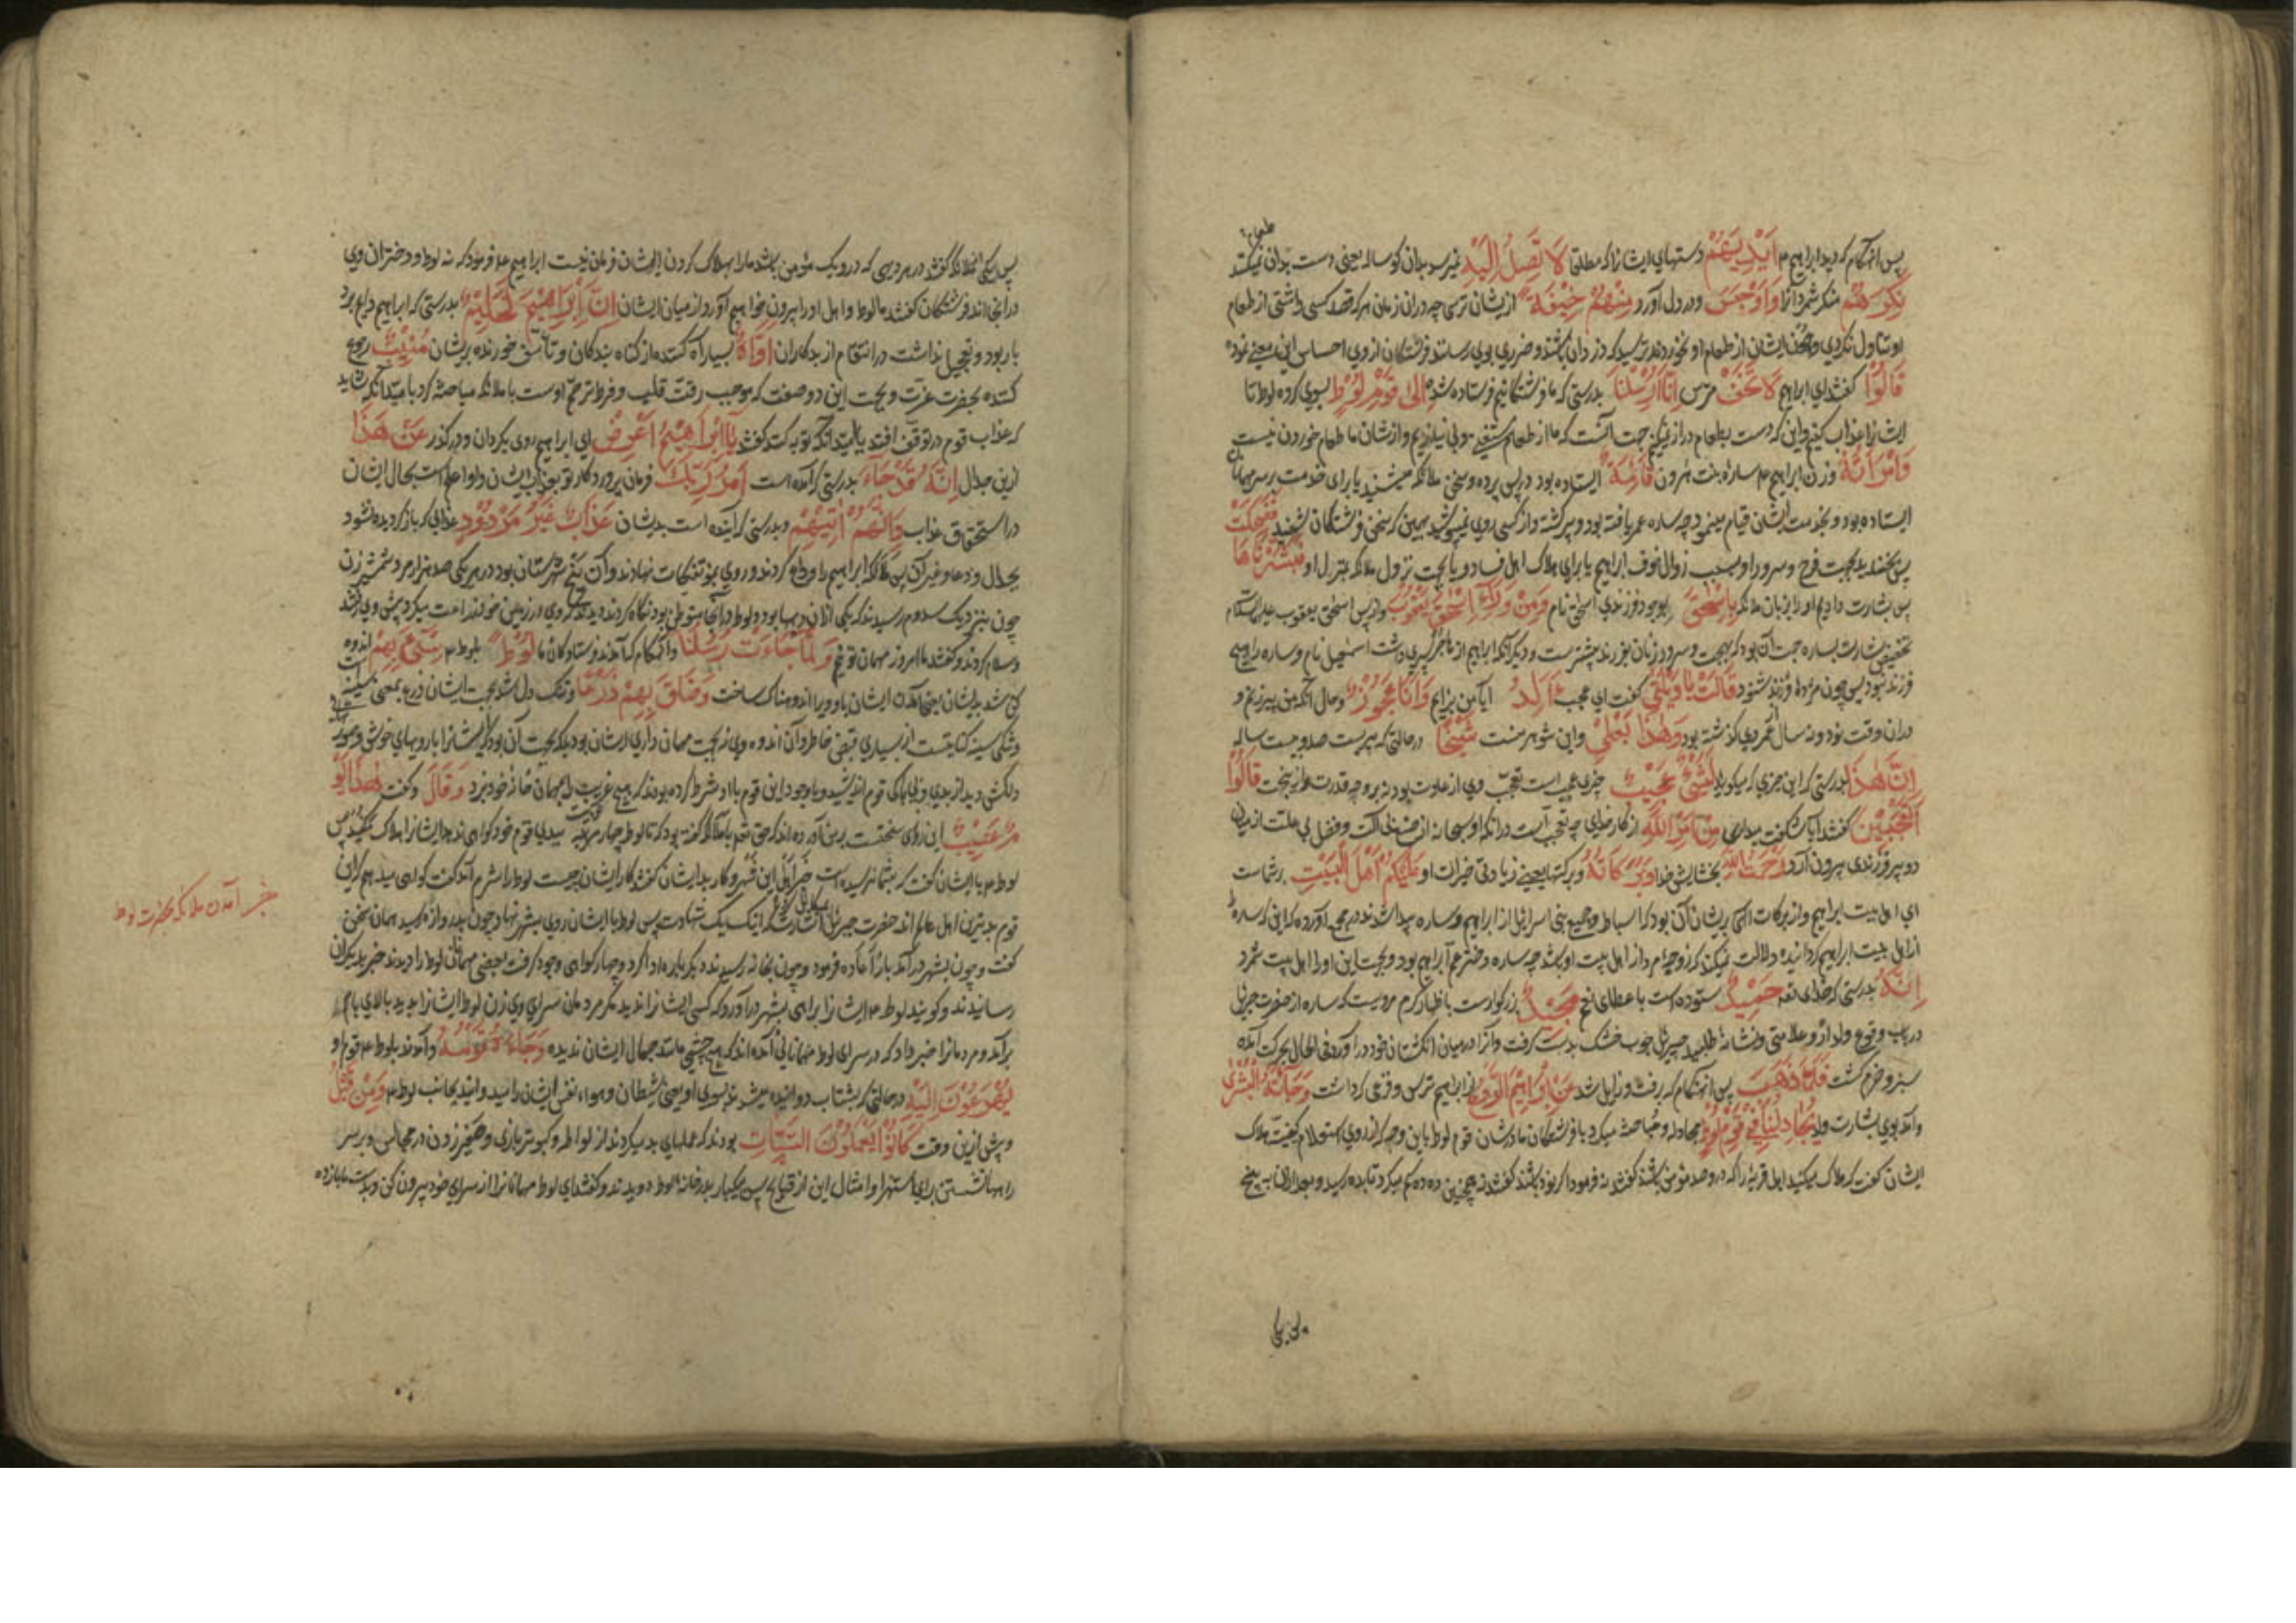 پس آنهنگام که دید ابراهیم ع اَیْدِیَهُمْ دستهای ایشانرا که مطلقا لَا تَصِلُ اِلَیْهِ نمیرسد بدان گوساله یعنی دست بدان نمیکنند
طعام
نَکِرَهُمْ منکر شمرد آنرا وَاَوْجَسَ و در دل آورد مِنْهُمْ خِیْفَةً از یشان ترسی چه دران زمان هر که قصد کسی داشتی از طعام
او تناول نکردی و چون ایشان از طعام او نخوردند ترسید که دزدان باشند و ضرری بوی رسانند فرشتگان از وی احساس این معنی نموده
قَالُوْا گفتند ای ابراهیم لَا تَخَفْ مترس اِنَّا اُرْسِلْنَا بدرستی که ما فرشتگانیم فرستاده شده اِلٰی قَوْمِ لُوْطٍ بسوی گروه لوط تا
ایشانرا عذاب کنیم و این که دست بطعام دراز نمیکنیم جهت آنست که ما از طعام مستغنی و بی نیازیم و از شان ما طعام خوردن نیست
وَامْرَاَتُهُ و زن ابراهیم ع ساره بنت هرون قَائِمَةٌ ایستاده بود در پس پرده و سخن ملائکه میشنید یا برای خدمت بر سر مهمانان
ایستاده بود و بخدمت ایشان قیام مینمود چه ساره عمر یافته بود و پیر گشته و از کسی روی نمیپوشید همین که سخن فرشتگان شنید فَضَحِکَتْ
پس بخندید بجهت فرح و سرور او بسبب زوال خوف ابراهیم یا برای هلاک اهل فساد و یا بجهت نزول ملائکه بمنزل او فَبَشَّرْنَاهَا
پس بشارت دادیم او را بزبان ملائکه بِاِسْحٰقَ بوجود فرزندی اسحق نام وَمِنْ وَرَاءِ اِسْحٰقَ یَعْقُوْبَ و از پس اسحق یعقوب علیهما السلام
تخصیص بشارت بساره جهت آن بود که بهجت و سرور زنان بفرزند بیشترست و دیگر آنکه ابراهیم از هاجر پسری داشت اسمعیل نام و ساره را هیچ
فرزند نبود پس چون مژده فرزند شنود قَالَتْ یَا وَیْلَتٰی گفت ای عجب ءَاَلِدُ آیا من بزایم وَاَنَا عَجُوْزٌ و حال آنکه من پیرزنم و
دران وقت نود و نه سال از عمر وی گذشته بود وَهٰذَا بَعْلِیْ و این شوهر منست شَیْخًا در حالتی که پیرست صد و بیست ساله
اِنَّ هٰذَا بدرستی که این چیزی که میگویند لَشَیْءٌ عَجِیْبٌ چیزی عجیب است تعجب وی از عادت بود نه بر وجه قدرت قَالُوْا
اَتَعْجَبِیْنَ گفتند آیا شگفت میداری مِنْ اَمْرِ اللّٰهِ از کار خدای چه تعجب است در آنکه او سبحانه از فضل بی علت از میان
دو پیر فرزندی بیرون آرد رَحْمَتُ اللّٰهِ بخشایش خدا وَبَرَکَاتُهُ و برکتها یعنی زیادتی خیرات او عَلَیْکُمْ اَهْلَ الْبَیْتِ بر شماست
ای اهل بیت ابراهیم و از برکات الهی بریشان آن بود که اسباط و جمیع بنی اسرائیل از ابراهیم و ساره پیدا شدند در مجمع آورده که این که ساره را
از اهل بیت ابراهیم گردانیده دلالت نمیکند که زوجه ام از اهل بیت او باشد چه ساره دختر عم ابراهیم بود و بجهت این او را اهل بیت شمرد
اِنَّهُ بدرستی که خدای تعه حَمِیْدٌ ستوده است با عطای نعم مَجِیْدٌ بزرگوارست باظهار کرم مرویست که ساره از حضرت جبرئیل
در باب وقوع ولد از و علامتی و نشانه طلبید جبرئیل چوب خشک بدست گرفت و آنرا در میان انگشتان خود در آورد فی الحال بحرکت آمده
سبز و خرم گشت فَلَمَّا ذَهَبَ پس آنهنگام که رفت و زایل شد عَنْ اِبْرَاهِیْمَ الرَّوْعُ از ابراهیم ترس و فزعی که داشت وَجَاءَتْهُ الْبُشْرٰی
و آمد بوی بشارت ولد یُجَادِلُنَا فِیْ قَوْمِ لُوْطٍ مجادله و مباحثه میکرد با فرشتگان ما در شان قوم لوط باین وجه که از روی استعلام کیفیت هلاک
ایشان گفت که هلاک میکنید اهل قریه را که درو صد مؤمن باشند گفتند نه فرمود اگر نود باشند گفتند نه همچنین ده ده کم میکرد تا بده رسید و بعد ازان به پنج
پس یکی
پس یکی ملائکه گفتند در هر دیهی که درو یک مؤمن باشد ما را بهلاک کردن ایشان فرمان نیست ابراهیم علیه فرمود که نه لوط و دختران وی
در انجا اند فرشتگان گفتند ما لوط و اهل او را بیرون خواهیم آورد از میان ایشان اِنَّ اِبْرَاهِیْمَ لَحَلِیْمٌ بدرستی که ابراهیم
بار بود و تعجیل نداشت در انتقام از بدکاران اَوَّاهٌ بسیار آه کننده از گناه بندگان و تأسف خورنده بریشان مُنِیْبٌ رجوع
کننده بحضرت عزت و بجهت این دو صفت که موجب رقت قلب و فرط ترحم اوست با ملائکه مباحثه کرد بامید آنکه شاید
که عذاب قوم در توقف افتد بامید آنکه توبه کنند گفتند یَا اِبْرَاهِیْمُ اَعْرِضْ ای ابراهیم روی بگردان و درگذر عَنْ هٰذَا
ازین جدال اِنَّهُ قَدْ جَاءَ بدرستی که آمده است اَمْرُ رَبِّکَ فرمان پروردگار تو بعذاب ایشان و او اعلم است بحال ایشان
در استحقاق عذاب وَاِنَّهُمْ اٰتِیْهِمْ و بدرستی که آینده است بدیشان عَذَابٌ غَیْرُ مَرْدُوْدٍ عذابی که باز گردیده نشود
بجدال و دعا و غیر آن پس ملائکه ابراهیم را وداع کردند و روی بمؤتفکات نهادند و آن پنج شهرستان بود در هر یکی صد هزار مرد شمشیر زن
چون بنزدیک سدوم رسیدند که یکی ازان دیهها بود و لوط در انجا متوطن بود نگاه کردند دیدند که وی در زمین خود زراعت میکرد پیش وی رفتند
و سلام کردند و گفتند ما امروز مهمان توئیم وَلَمَّا جَاءَتْ رُسُلُنَا و آنهنگام که آمدند فرستادگان ما لُوْطًا بلوط ع سِیْءَ بِهِمْ اندوه
گین شد بدیشان یعنی آمدن ایشان باو ویرا اندوهناک ساخت وَضَاقَ بِهِمْ ذَرْعًا و تنگ دل شد بجهت ایشان ذرع بمعنی سینه است
و تنگی سینه کنایتست از بسیاری قبض خاطر و آن اندوه وی نه بجهت مهمان داری ایشان بود بلکه بجهت آن بود که ایشانرا با رویهای خوش و
دلکش دید از بدی و بی باکی قوم اندیشید و با وجود این قوم با او شرط کرده بودند که هیچ غریب را بمهمان خانه خود نبرد وَقَالَ و گفت هٰذَا یَوْمٌ
عَصِیْبٌ این روزی سختست بر من آورده اند که حق تعه با ملائکه گفته بود که تا لوط چهار مرتبه ببدی قوم خود گواهی ندهد ایشانرا هلاک مکنید پس
لوط ع با ایشان گفت که بشما نرسیده است خبر اهل این شهر و کار بد ایشان گفتند کار ایشان چیست لوط را شرم آمد گفت گواهی میدهم که این
قوم بدترین اهل عالم اند حضرت جبرئیل اشارت کرد که اینک یک شهادت پس لوط با ایشان روی بشهر نهاد و چون بدروازه رسید همان سخن
گفت و چون بشهر در آمد باز اعاده فرمود و چون بخانه رسیدند دیگر باره ادا کرد و چهار گواهی وجود گرفت بعضی مهمانان لوط را دیدند خبر بدیگران
رسانیدند و گویند لوط ع ایشانرا براهی بشهر در آورد که کسی ایشانرا ندید مگر مردمان سرای وی زن لوط ایشانرا بدید بالای بام
برآمد و مردمانرا خبر داد که در سرای لوط مهمانانی آمده اند که هیچ چشمی مانند جمال ایشان ندیده وَجَاءَهُ قَوْمُهُ و آمدند بلوط ع قوم او
یُهْرَعُوْنَ اِلَیْهِ در حالتی که بشتاب دوانیده میشدند بسوی او یعنی شیطان و هواء نفس ایشانرا میدوانید بجانب لوط ع وَمِنْ قَبْلُ
و پیش ازین وقت کَانُوْا یَعْمَلُوْنَ السَّیِّئَاتِ بودند که عملهای بد میکردند از لواطه و کبوتر بازی و صفیر زدن در مجالس و بر سر
راهها نشستن برای استهزا و امثال این از قبایح پس بیکبار بدر خانه لوط دویدند و گفتند ای لوط مهمانانرا از سرای خود بیرون کن و بدست ما باز ده
خبر آمدن ملائکه بحضرت لوط